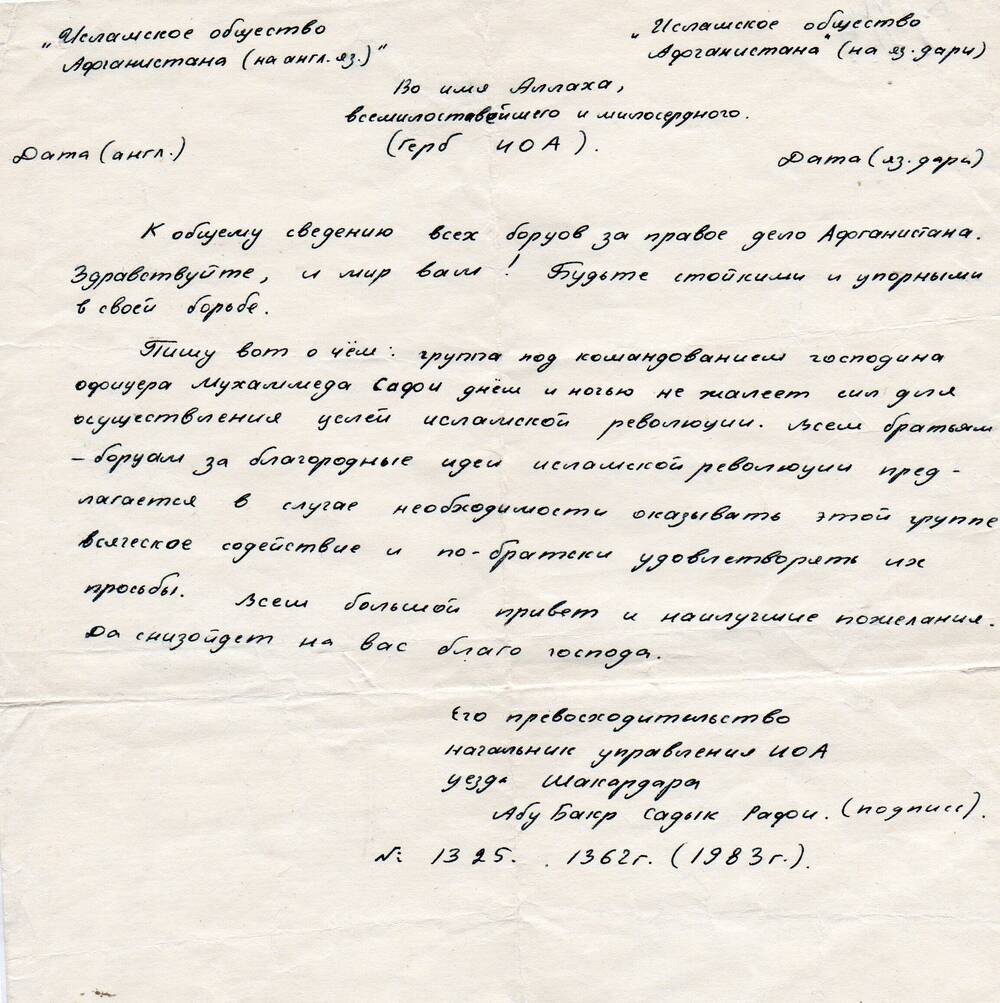 „Исламское общество
Афганистана (на англ. яз.)"
„Исламское общество
Афганистана" (на яз. дари)
Во имя Аллаха,
всемилоставейшего и милосердного.
(Герб ИОА).
Дата (англ.)
Дата (яз. дари)
К общему сведению всех борцов за правое дело Афганистана.
Здравствуйте, и мир вам! Будьте стойкими и упорными
в своей борьбе.
Пишу вот о чём: группа под командованием господина
офицера Мухаммеда Сафи днём и ночью не жалеет сил для
осуществления целей исламской революции. Всем братьям
– борцам за благородные идеи исламской революции пред-
лагается в случае необходимости оказывать этой группе
всяческое содействие и по-братски удовлетворять их
просьбы. Всем большой привет и наилучшие пожелания.
Да снизойдет на вас благо господа.
Его превосходительство
начальник управления ИОА
уезда Шакардара
Абу Бакр Садык Рафи. (подписс).
№ 1325. 1362г. (1983г.).